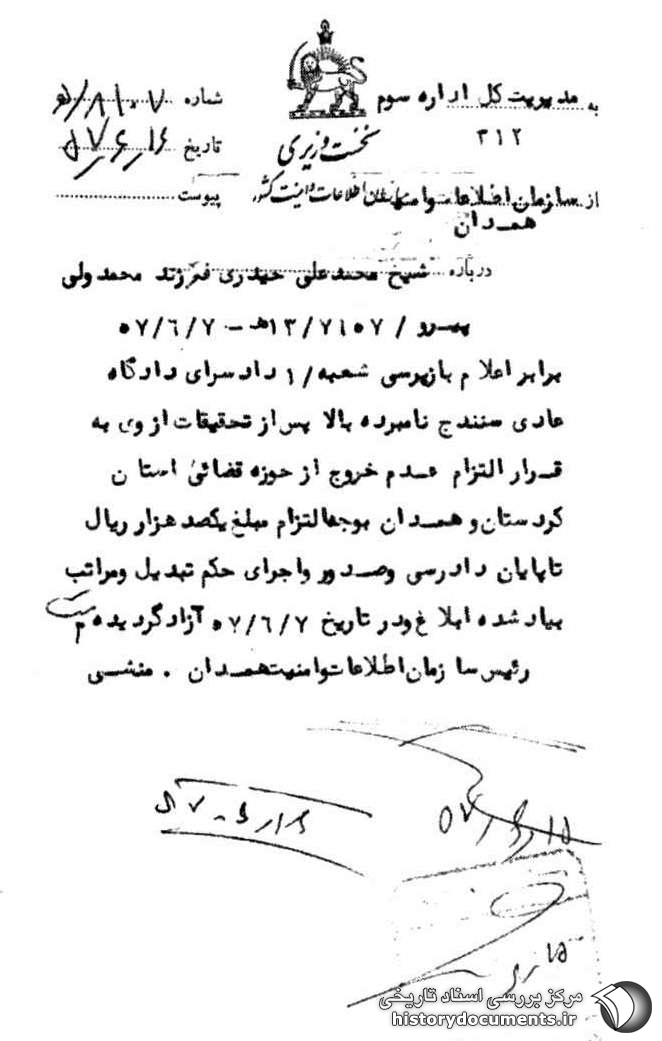 به مدیریت کل اداره سوم
۳۱۲
نخست وزیری
سازمان اطلاعات و امنیت کشور
شماره ۸۱۰۷/
تاریخ ۵۷/۶/۱۴
پیوست
از سازمان اطلاعات و امنیت
همدان
درباره شیخ محمدعلی حیدری فرزند محمدولی
پیرو ۱۳/۷۱۵۷/ه‍ – ۵۷/۶/۷
برابر اعلام بازپرسی شعبه/۱ دادسرای دادگاه
عادی سنندج نامبرده بالا پس از تحقیقات از وی به
قرار التزام عدم خروج از حوزه قضائی استان
کردستان و همدان بوجه‌التزام مبلغ یکصد هزار ریال
تا پایان دادرسی و صدور و اجرای حکم تبدیل و مراتب
بیاد شده ابلاغ و در تاریخ ۵۷/۶/۷ آزاد گردیده
رئیس سازمان اطلاعات و امنیت همدان . منشی
۵۷/۶/۱۵
مرکز بررسی اسناد تاریخی
historydocuments.ir